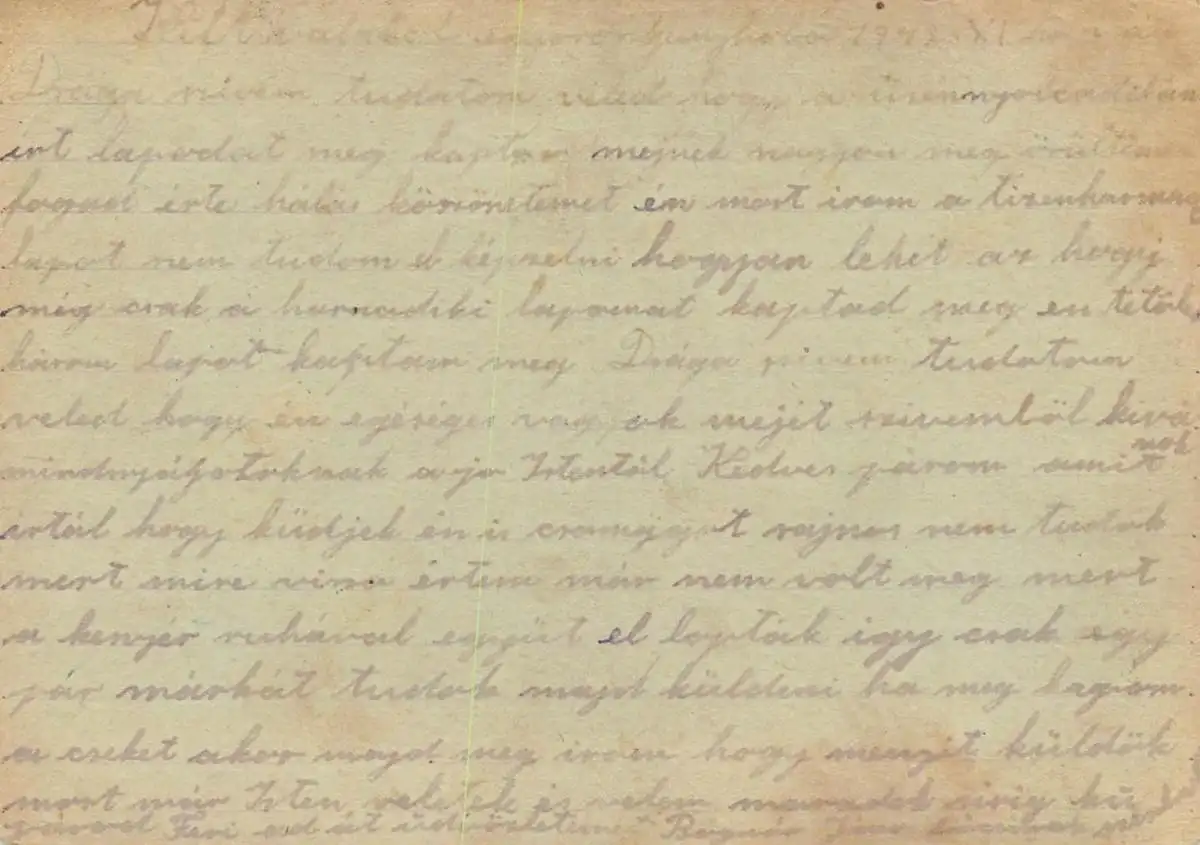 1943 XI
Drága szívem tudatom veled hogy a tizennyolcadikán
írt lapodat meg kaptam mejnek nagyon meg örültem
fogad érte hálás köszönetemet én most irom a tizenharmag
lapot nem tudom el képzelni hogyan lehet az hogy
még csak a harmadiki lapomat kaptad meg én tetőled
három lapot kaptam meg Drága szivem tudatom
veled hogy én egéséges vagyok mejet szivemböl kivá
nok
mindnyájotoknak a jo Istentől Kedves párom amit
írtál hogy küdjek én is csomagot sajnos nem tudok
mert mire visza értem már nem volt meg mert
a kenyér ruhával együt el lopták igy csak egy
pár márkát tudok majd küldeni ha meg kapom
a cseket akor majd meg irom hogy menyit küldök
most már Isten veletek és velem maradok sirig hű
párod Feri ad át üdvözletemet